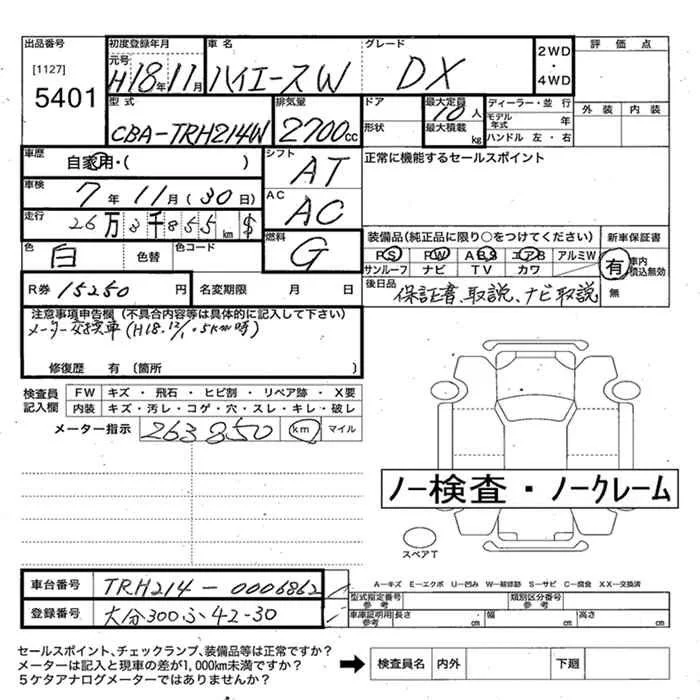 出品番号 初度登録年月 車名 グレード 2WD・4WD 評価点
[1127] 元号 H18年11月 ハイエースW DX
5401 型式 排気量 ドア 最大定員 ディーラー・並行 外装 内装
CBA-TRH214W 2700cc 形状 10人 モデル年式 年
最大積載 kg ハンドル 左・右
車歴 自家用・( ) シフト AT 正常に機能するセールスポイント
車検 7年11月(30日) AC AC
走行 26万3千855km $
色 白 色替 色コード 燃料 G 装備品(純正品に限り○をつけてください) 新車保証書
PS FW ABS エアB アルミW 有 車内積込無効
サンルーフ ナビ TV カワ
R券 15250円 名変期限 月 日 後日品 保証書、取説、ナビ取説 無
注意事項申告欄(不具合内容等は具体的に記入して下さい)
メーター交換車(H18.12/1.5km時)
修復歴 有〔箇所 〕
検査員記入欄 FW キズ・飛石・ヒビ割・リペア跡・X要
内装 キズ・汚レ・コゲ・穴・スレ・キレ・破レ
メーター指示 263850 km マイル
ノー検査・ノークレーム
スペアT
車台番号 TRH214-0006862 A-キズ E-エクボ U-凹み W-補修跡 S-サビ C-腐食 XX-交換済
型式指定番号 参考 類別区分番号 参考
登録番号 大分300ふ42-30 車庫証明用 参考 長さ cm 幅 cm 高さ cm
セールスポイント、チェックランプ、装備品等は正常ですか?
メーターは記入と現車の差が1,000km未満ですか? 検査員名 内外 下廻
5ケタアナログメーターではありませんか?